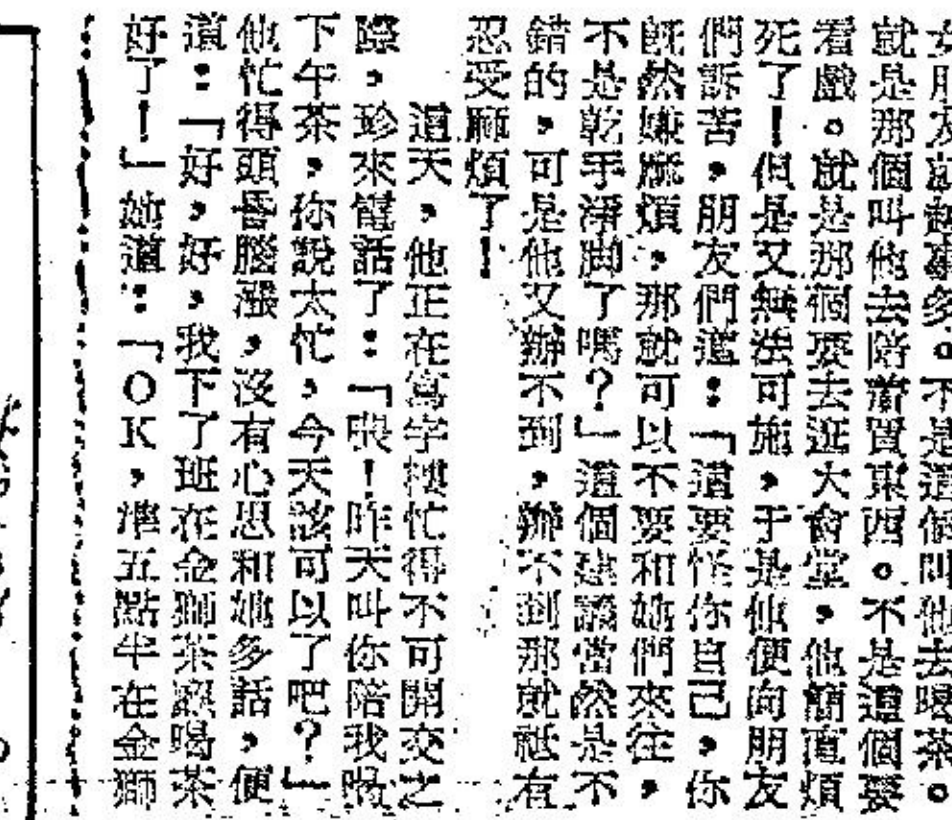 女朋友就越要多。不是這個叫他去喝茶。
就是那個叫他去陪着買東西。不是這個要
看戲。就是那個要去逛大會堂，他簡直煩
死了！但是又無法可施，于是他便向朋友
們訴苦，朋友們道：「這要怪你自己，你
既然嫌麻煩，那就可以不要和她們來往，
不是乾手淨脚了嗎？」這個建議當然是不
錯的，可是他又辦不到，辦不到那就祗有
忍受麻煩了！
這天，他正在寫字樓忙得不可開交之
際，珍來電話了：「喂！昨天叫你陪我喝
下午茶，你說太忙，今天該可以了吧？」
他忙得頭昏腦漲，沒有心思和她多話，便
道：「好，好，我下了班在金獅茶廳喝茶
好了！」她道：「OK，準五點半在金獅